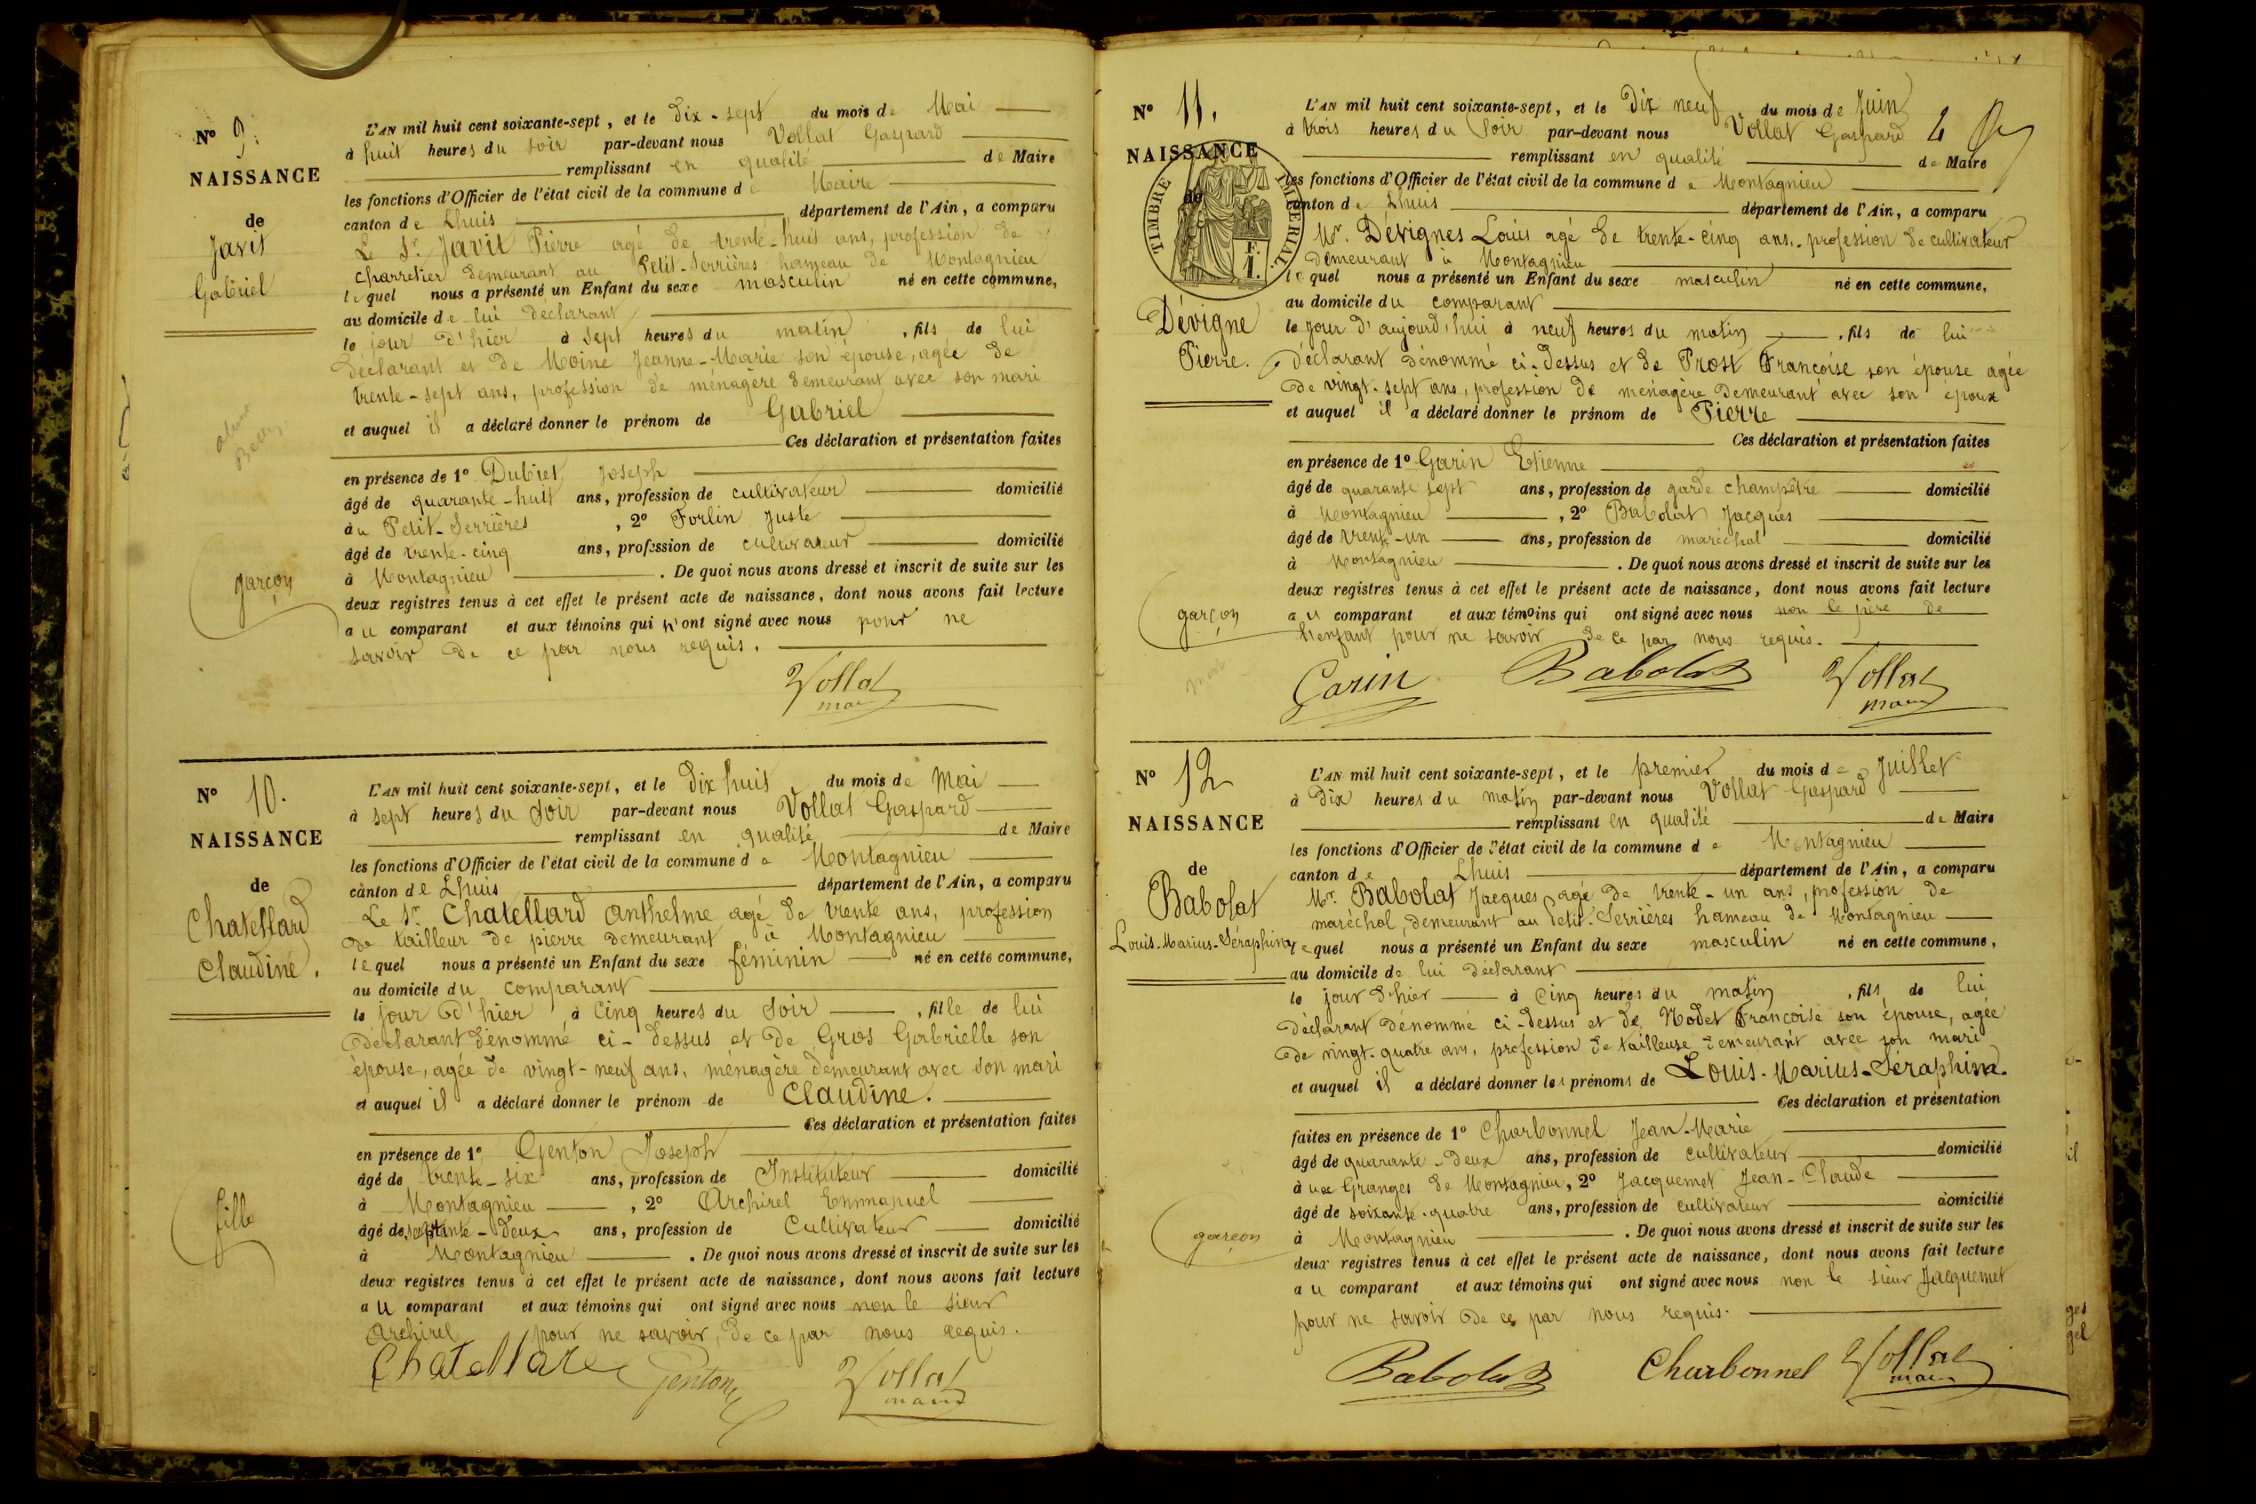 N° 9.
NAISSANCE
de
Javit
Gabriel
garçon
L'AN mil huit cent soixante-sept, et le Dix-sept du mois de Mai
à huit heures du soir par-devant nous Vollat Gaspard
remplissant en qualité de Maire
les fonctions d'Officier de l'état civil de la commune de Maire
canton de Lhuis département de l'Ain, a comparu
Le Sr. Javit Pierre agé de trente-huit ans, profession de
charretier demeurant au Petit-Serrières hameau de Montagnieu
lequel nous a présenté un Enfant du sexe masculin né en cette commune,
au domicile de lui déclarant
le jour d'hier à sept heures du matin, fils de lui
déclarant et de Moine Jeanne-Marie son épouse, agée de
trente-sept ans, profession de ménagère demeurant avec son mari
et auquel il a déclaré donner le prénom de Gabriel
Ces déclaration et présentation faites
en présence de 1° Dubiet Joseph
âgé de quarante-huit ans, profession de cultivateur domicilié
au Petit-Serrières, 2° Forlin Juste
âgé de trente-cinq ans, profession de cultivateur domicilié
à Montagnieu. De quoi nous avons dressé et inscrit de suite sur les
deux registres tenus à cet effet le présent acte de naissance, dont nous avons fait lecture
au comparant et aux témoins qui n'ont signé avec nous pour ne
savoir de ce par nous requis.
Vollat
maire
N° 10.
NAISSANCE
de
Chatellard
Claudine.
fille
L'AN mil huit cent soixante-sept, et le Dix huit du mois de Mai
à sept heures du soir par-devant nous Vollat Gaspard
remplissant en qualité de Maire
les fonctions d'Officier de l'état civil de la commune de Montagnieu
canton de Lhuis département de l'Ain, a comparu
Le Sr. Chatellard Anthelme agé de trente ans, profession
de tailleur de pierre demeurant à Montagnieu
lequel nous a présenté un Enfant du sexe féminin né en cette commune,
au domicile du comparant
le jour d'hier à cinq heures du soir, fille de lui
déclarant dénommé ci-dessus et de Gros Gabrielle son
épouse, agée de vingt-neuf ans, ménagère demeurant avec son mari
et auquel il a déclaré donner le prénom de Claudine.
Ces déclaration et présentation faites
en présence de 1° Genton Joseph
âgé de trente-six ans, profession de Instituteur domicilié
à Montagnieu, 2° Archirel Emmanuel
âgé de septante-deux ans, profession de Cultivateur domicilié
à Montagnieu. De quoi nous avons dressé et inscrit de suite sur les
deux registres tenus à cet effet le présent acte de naissance, dont nous avons fait lecture
au comparant et aux témoins qui ont signé avec nous non le sieur
Archirel pour ne savoir, de ce par nous requis.
Chatellard Genton Vollat
maire
N° 11.
NAISSANCE
de
TIMBRE IMPERIAL
F.
1.
Dévigne
Pierre.
garçon
L'AN mil huit cent soixante-sept, et le Dix neuf du mois de Juin
à trois heures du soir par-devant nous Vollat Gaspard
remplissant en qualité de Maire
les fonctions d'Officier de l'état civil de la commune de Montagnieu
canton de Lhuis département de l'Ain, a comparu
Mr. Dévignes Louis agé de trente-cinq ans, profession de cultivateur
demeurant à Montagnieu
lequel nous a présenté un Enfant du sexe masculin né en cette commune,
au domicile du comparant
le jour d'aujourd'hui à neuf heures du matin, fils de lui
déclarant dénommé ci-dessus et de Prost Françoise son épouse agée
de vingt-sept ans, profession de ménagère demeurant avec son époux
et auquel il a déclaré donner le prénom de Pierre
Ces déclaration et présentation faites
en présence de 1° Garin Etienne
âgé de quarante sept ans, profession de garde champêtre domicilié
à Montagnieu, 2° Babolat Jacques
âgé de trente-un ans, profession de maréchal domicilié
à Montagnieu. De quoi nous avons dressé et inscrit de suite sur les
deux registres tenus à cet effet le présent acte de naissance, dont nous avons fait lecture
au comparant et aux témoins qui ont signé avec nous non le père de
l'enfant pour ne savoir de ce par nous requis.
Garin Babolat Vollat
maire
N° 12
NAISSANCE
de
Babolat
Louis-Marius-Séraphin
garçon
L'AN mil huit cent soixante-sept, et le premier du mois de Juillet
à Dix heures du matin par-devant nous Vollat Gaspard
remplissant en qualité de Maire
les fonctions d'Officier de l'état civil de la commune de Montagnieu
canton de Lhuis département de l'Ain, a comparu
Mr. Babolat Jacques agé de trente-un ans, profession de
maréchal, demeurant au Petit-Serrières hameau de Montagnieu
lequel nous a présenté un Enfant du sexe masculin né en cette commune,
au domicile de lui déclarant
le jour d'hier à cinq heures du matin, fils de lui
déclarant dénommé ci-dessus et de Nodet Françoise son épouse, agée
de vingt-quatre ans, profession de tailleuse demeurant avec son mari
et auquel il a déclaré donner les prénoms de Louis-Marius-Séraphin.
Ces déclaration et présentation
faites en présence de 1° Charbonnel Jean-Marie
âgé de quarante-deux ans, profession de cultivateur domicilié
à aux Granges de Montagnieu, 2° Jacquemet Jean-Claude
âgé de soixante-quatre ans, profession de cultivateur domicilié
à Montagnieu. De quoi nous avons dressé et inscrit de suite sur les
deux registres tenus à cet effet le présent acte de naissance, dont nous avons fait lecture
au comparant et aux témoins qui ont signé avec nous non le sieur Jacquemet
pour ne savoir de ce par nous requis.
Babolat Charbonnel Vollat
maire